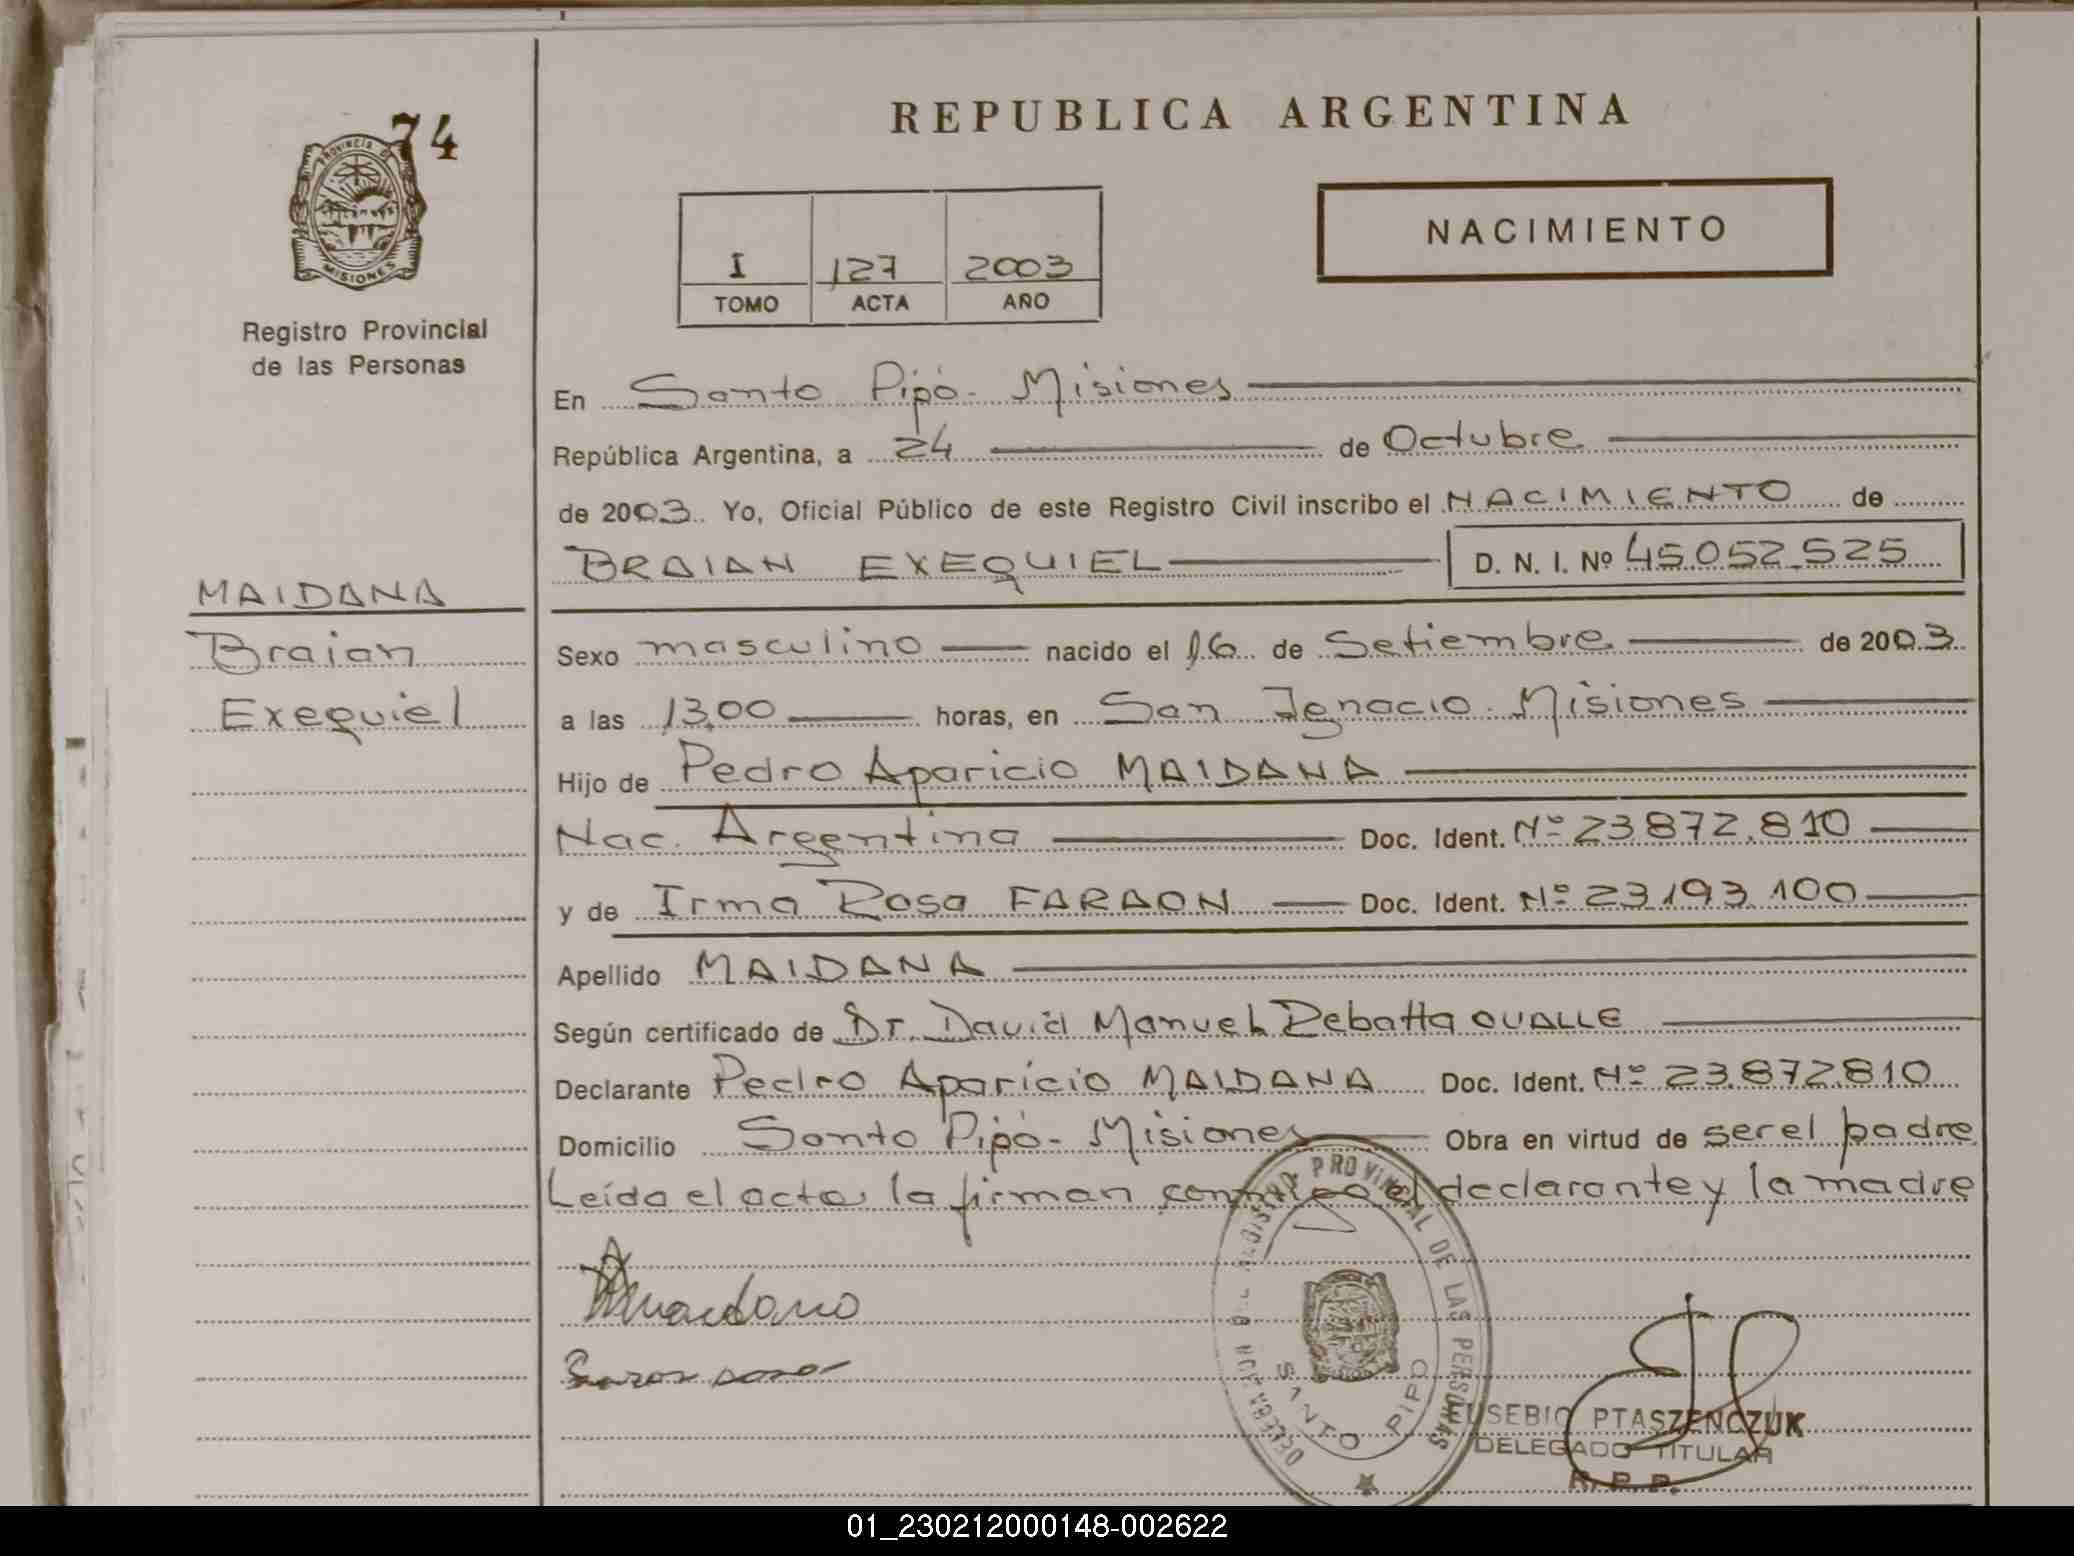 74
PROVINCIA DE
MISIONES
Registro Provincial
de las Personas
REPUBLICA ARGENTINA
NACIMIENTO
I 127 2003
TOMO ACTA AÑO
En Santo Pipó - Misiones
República Argentina, a 24 de Octubre
de 2003. Yo, Oficial Público de este Registro Civil inscribo el NACIMIENTO de
BRAIAN EXEQUIEL D. N. I. Nº 45.052.525
MAIDANA
Braian
Exequiel
Sexo masculino nacido el 16 de Setiembre de 2003
a las 13,00 horas, en San Ignacio - Misiones
Hijo de Pedro Aparicio MAIDANA
Nac. Argentina Doc. Ident. Nº 23.872.810
y de Irma Rosa FARAON Doc. Ident. Nº 23.193.100
Apellido MAIDANA
Según certificado de Dr. David Manuel Rebatta OVALLE
Declarante Pedro Aparicio MAIDANA Doc. Ident. Nº 23.872.810
Domicilio Santo Pipó - Misiones Obra en virtud de ser el padre
Leída el acta, la firman conmigo el declarante y la madre
PROVINCIAL DE LAS PERSONAS
SANTO PIPO
EUSEBIO PTASZENCZUK
DELEGADO TITULAR
R. P. P.
01_230212000148-002622